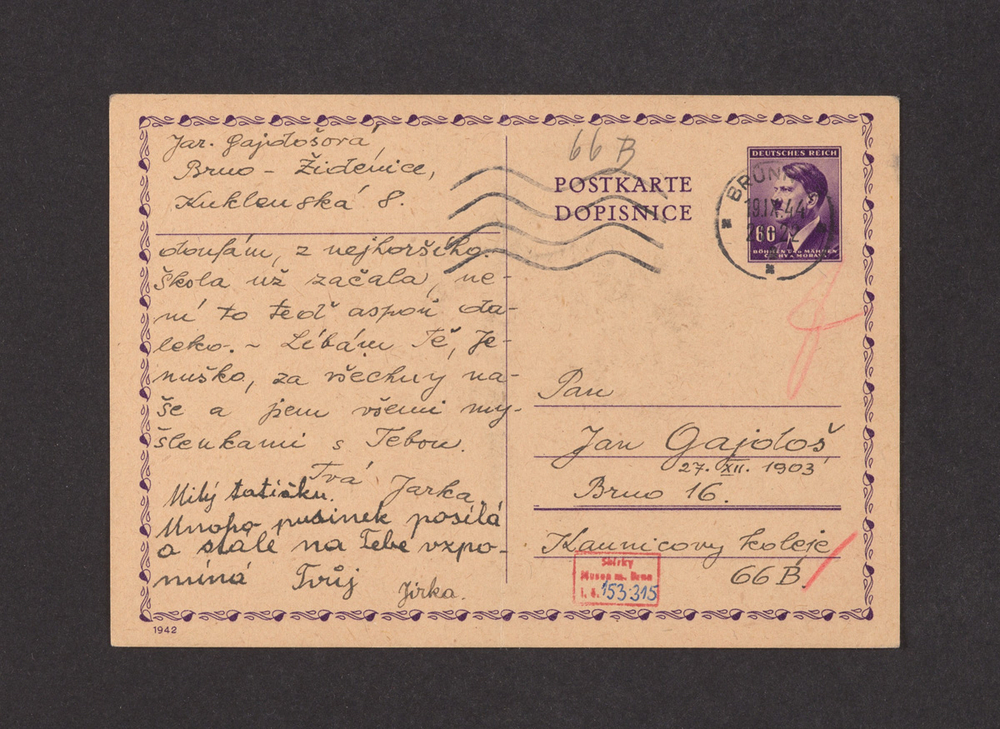 Jar. Gajdošová
Brno - Židenice,
Kuklenská 8.
doufám, z nejhoršího.
Škola už začala, ne-
ní to teď aspoň da-
leko. - Líbám Tě, Je-
nuško, za všechny na-
še a jsem všemi my-
šlenkami s Tebou.
Tvá Jarka.
Milý tatíčku.
Mnoho pusinek posílá
a stále na Tebe vzpo-
míná Tvůj
Jirka.
1942
66 B
POSTKARTE
DOPISNICE
DEUTSCHES REICH
BRÜNN
19.IX.44
60
BÖHMEN UND MÄHREN
ČECHY A MORAVA
Pan
Jan Gajdoš
27. XII. 1903
Brno 16.
Kaunicovy koleje
66 B.
Sbírky
Musea m. Brna
i. č. 153.315